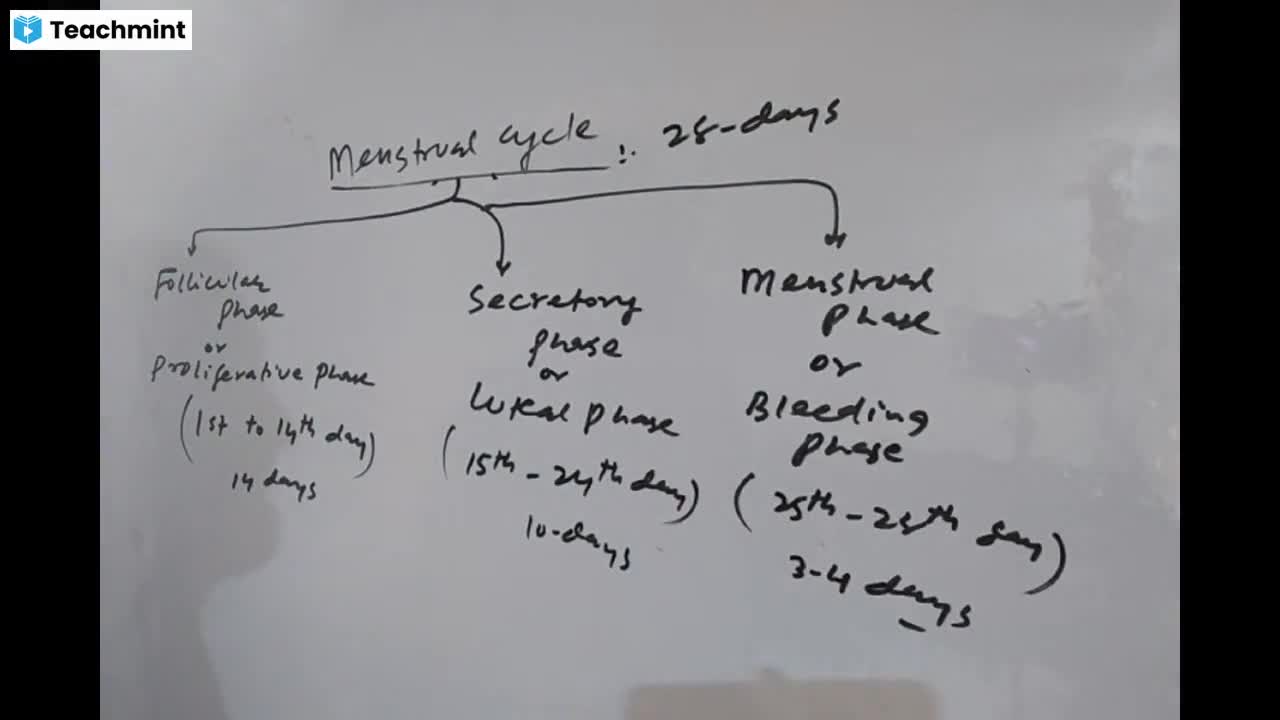 Teachmint
Menstrual cycle :. 28-days
Follicular
phase
or
Proliferative phase
(1st to 14th day)
14 days
Secretory
phase
or
Luteal phase
(15th - 24th day)
10-days
Menstrual
phase
or
Bleeding
phase
(25th - 28th day)
3-4 days